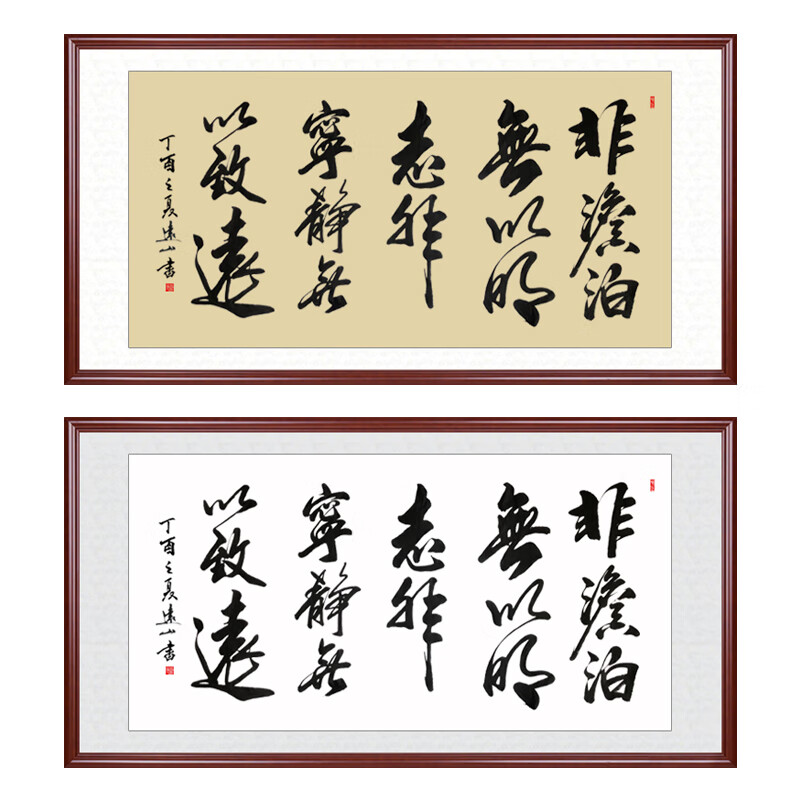 非澹泊
無以明
志非
寧靜無
以致遠
丁酉之夏遠山書
非澹泊
無以明
志非
寧靜無
以致遠
丁酉之夏遠山書